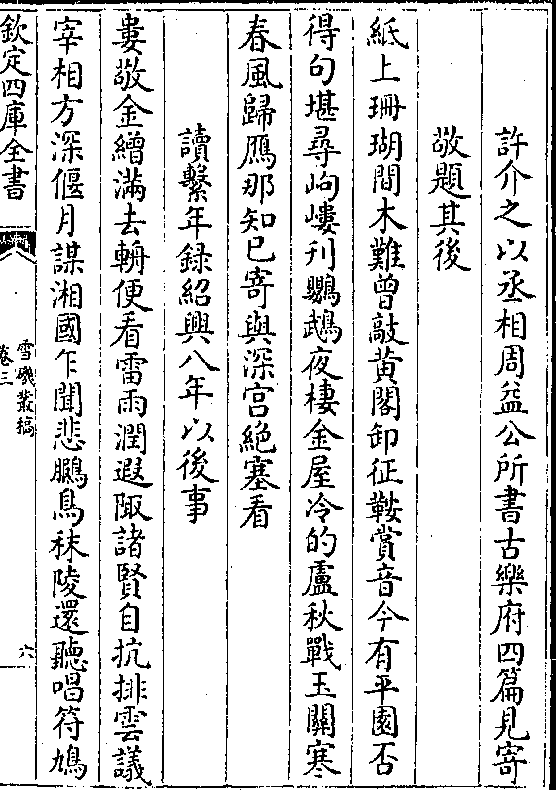 許介之以丞相周益公所書古樂府四篇見寄
敬題其後
紙上珊瑚間木難曾敲黄閣卸征鞍賞音今有平園否
得句堪尋岣嶁刋鸚鵡夜棲金屋冷的盧秋戰玉關寒
春風歸鴈那知已寄與深宫絶塞看
讀繫年録紹興八年以後事
婁敬金繒滿去輈便看雷雨潤遐陬諸賢自抗排雲議
宰相方深偃月謀湘國乍聞悲鵩鳥秣陵還聽唱符鳩
欽定四庫全書
雪磯叢稿
卷三
六